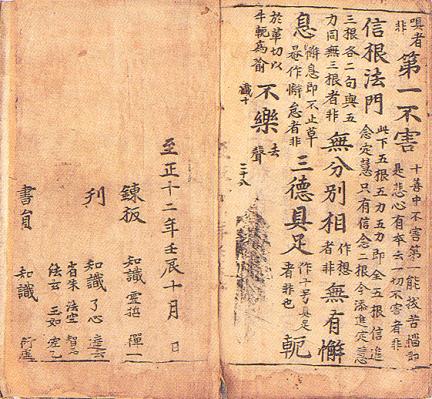 嗔者
非
第一不害
十善中不害第一能拔苦惱卽
是悲心有本去一切不害者非
信根法門
此下五根五力五力即全五根信進
念定慧只有信念二根今添進定慧
三根各二句與五
力同無三根者非
無分別相
作想
者非
無有懈
息
懈息即不止草
作懈怠者非
三德具足
作十号具足
者非也
軛
於革切以
牛軛為喻
不樂
去
聲
識十
二十八
至正十二年壬辰十月 日
鍊板 知識 禪一
刋 知識 了心 達玄
省珠 法空
法玄 三如 定乙
書員 知識